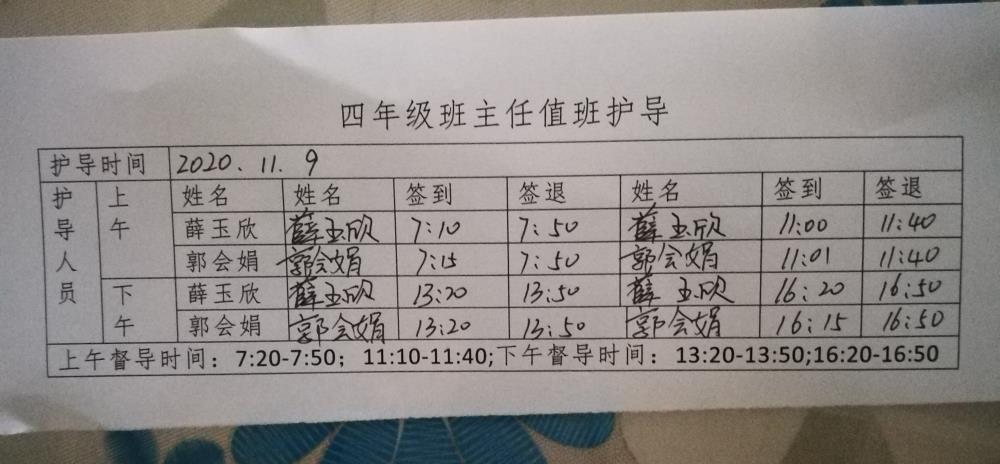 四年级班主任值班护导
护导时间 2020.11.9
护导人员 上午 姓名 姓名 签到 签退 姓名 签到 签退
薛玉欣 薛玉欣 7:10 7:50 薛玉欣 11:00 11:40
郭会娟 郭会娟 7:15 7:50 郭会娟 11:01 11:40
下午 薛玉欣 薛玉欣 13:20 13:50 薛玉欣 16:20 16:50
郭会娟 郭会娟 13:20 13:50 郭会娟 16:15 16:50
上午督导时间：7:20-7:50；11:10-11:40;下午督导时间：13:20-13:50;16:20-16:50